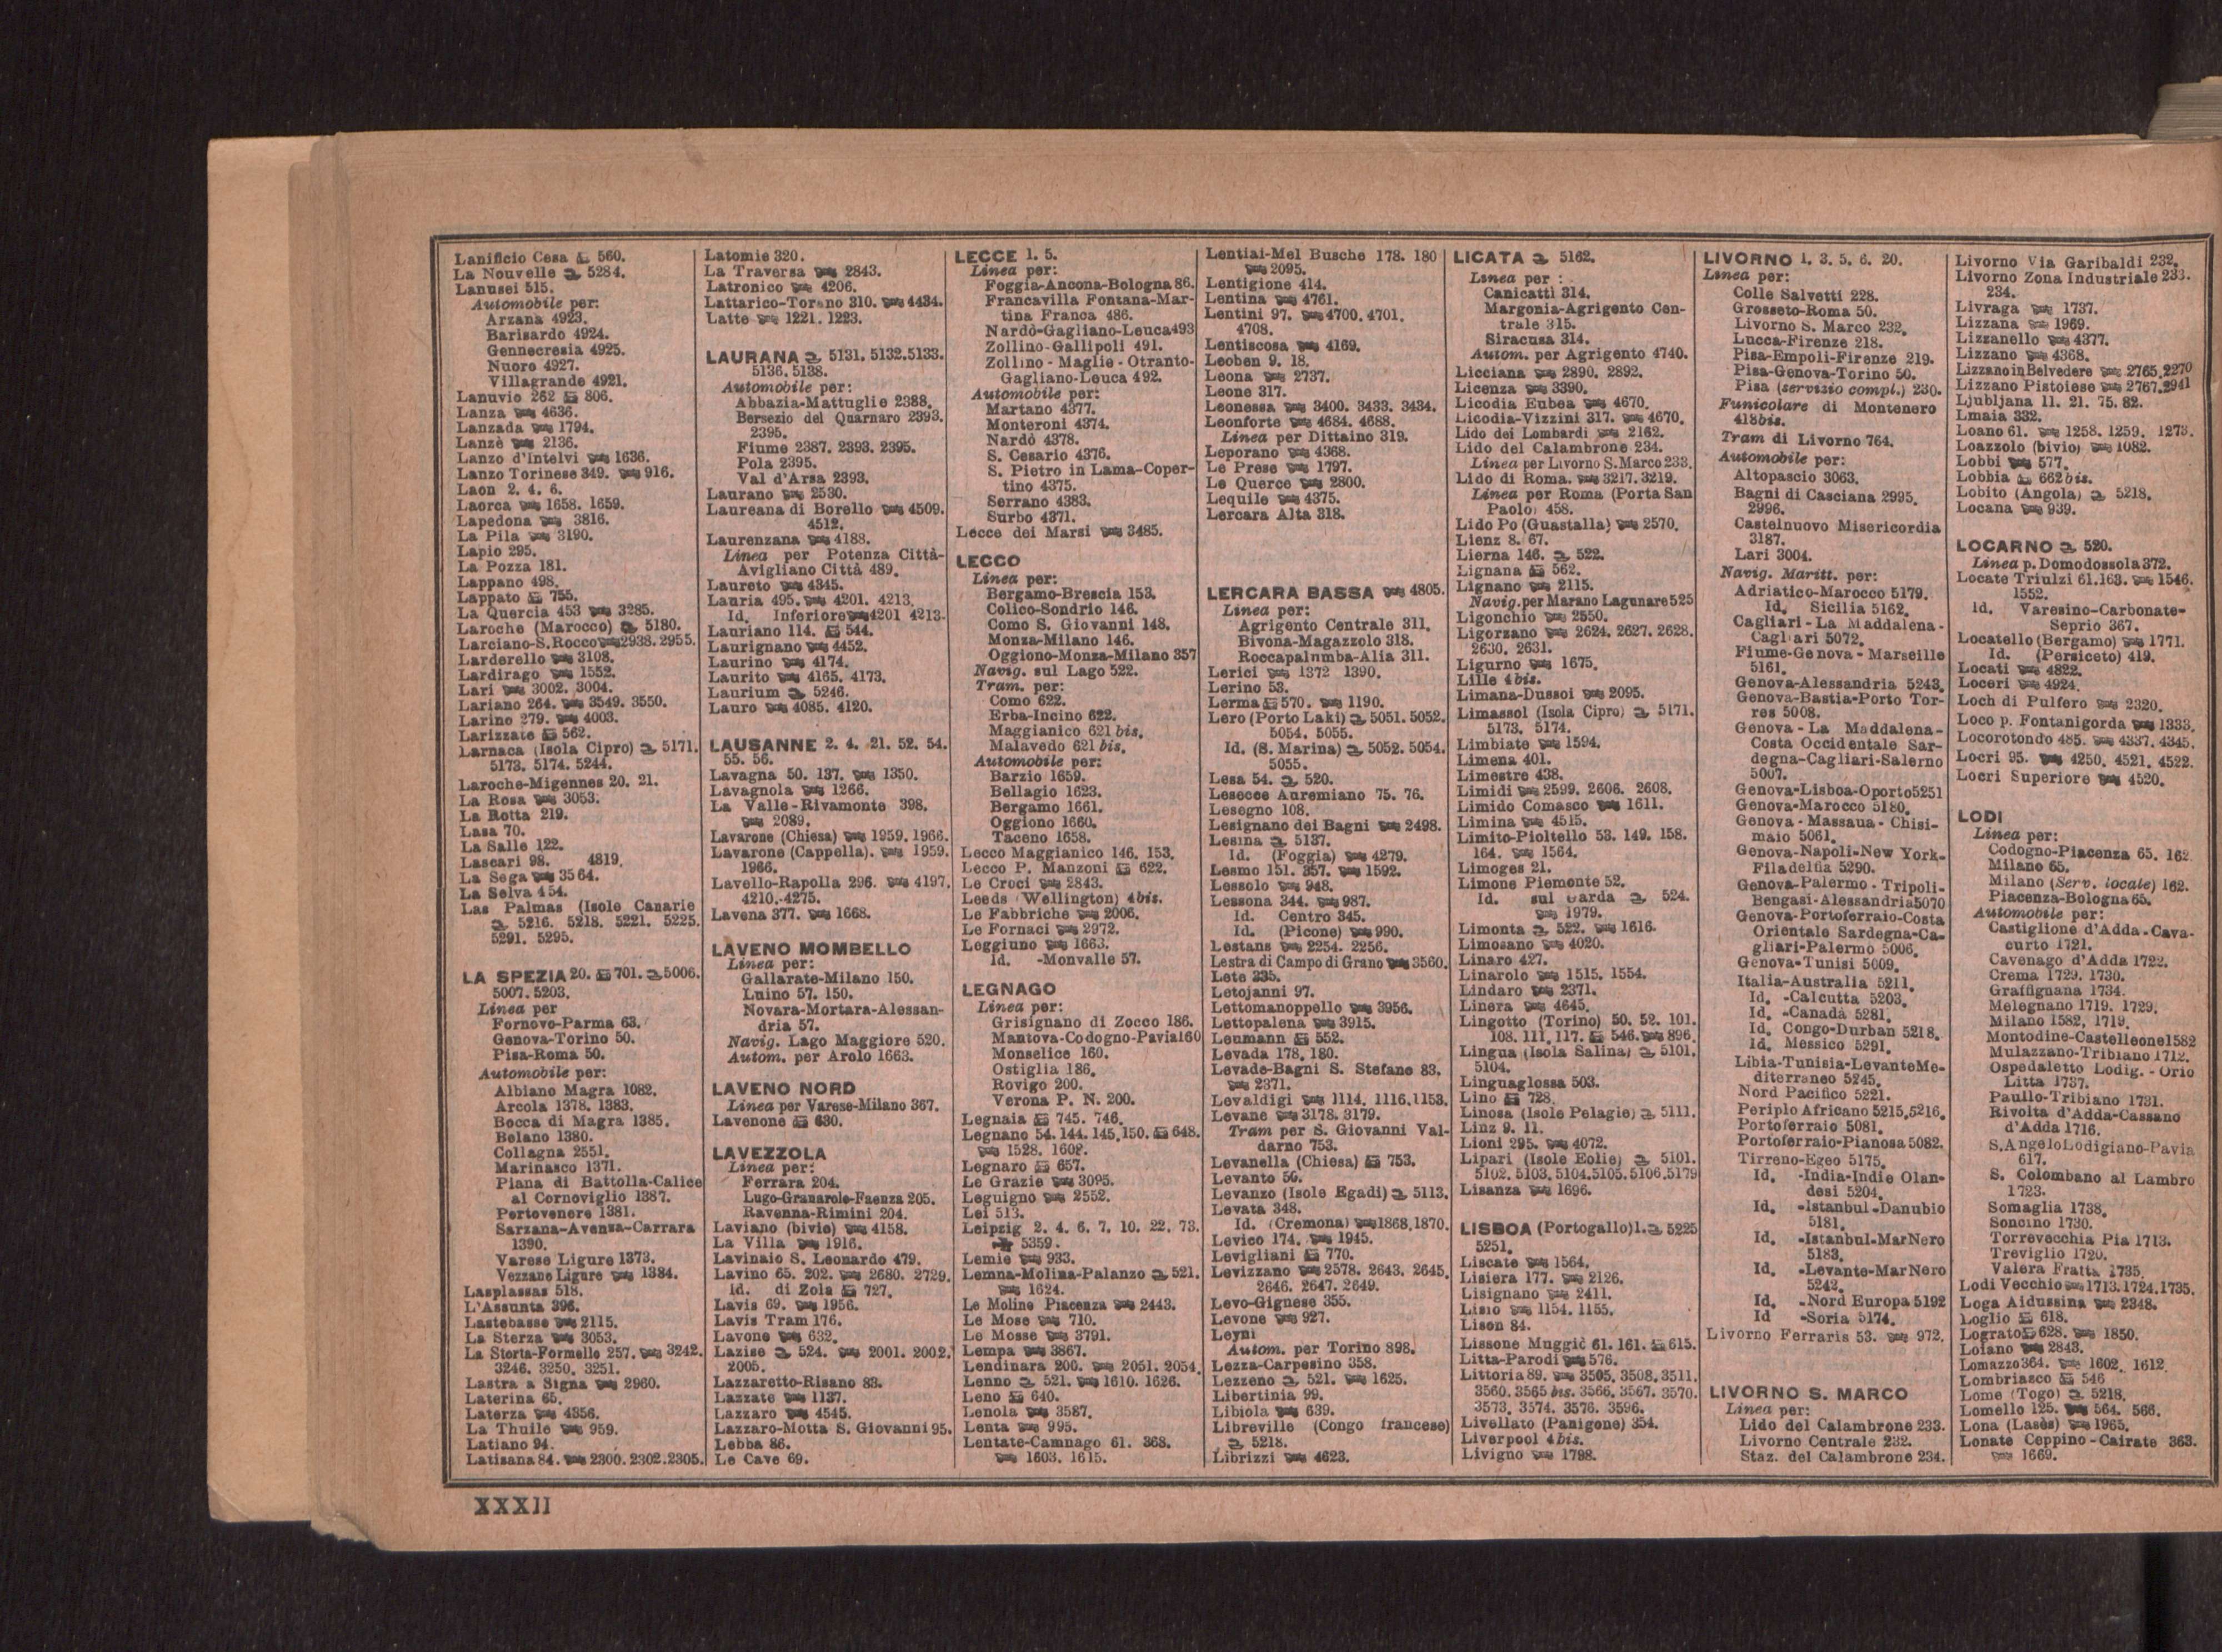 Lanificio Cesa 560.
La Nouvelle 5284.
Lanusei 515.
Automobile per:
Arzana 4923.
Barisardo 4924.
Gennecresia 4925.
Nuoro 4927.
Villagrande 4921.
Lanuvio 262 806.
Lanza 4636.
Lanzada 1794.
Lanzè 2136.
Lanzo d'Intelvi 1636.
Lanzo Torinese 349. 916.
Laon 2. 4. 6.
Laorca 1658. 1659.
Lapedona 3816.
La Pila 3190.
Lapio 295.
La Pozza 181.
Lappano 498.
Lappato 755.
La Quercia 453 3285.
Laroche (Marocco) 5180.
Larciano-S.Rocco 2938. 2955.
Larderello 3108.
Lardirago 1552.
Lari 3002. 3004.
Lariano 264. 3549. 3550.
Larino 279. 4003.
Larizzate 562.
Larnaca (Isola Cipro) 5171.
5173. 5174. 5244.
Laroche-Migennes 20. 21.
La Rosa 3053.
La Rotta 219.
Lasa 70.
La Salle 122.
Lascari 98. 4819.
La Sega 3564.
La Selva 454.
Las Palmas (Isole Canarie
5216. 5218. 5221. 5225.
5291. 5295.
LA SPEZIA 20. 701. 5006.
5007. 5203.
Linea per
Fornovo-Parma 63.
Genova-Torino 50.
Pisa-Roma 50.
Automobile per:
Albiano Magra 1082.
Arcola 1378. 1383.
Bocca di Magra 1385.
Bolano 1380.
Collagna 2551.
Marinasco 1371.
Piana di Battolla-Calice
al Cornoviglio 1387.
Portovenere 1381.
Sarzana-Avenza-Carrara
1390.
Varese Ligure 1373.
Vezzano Ligure 1384.
Lasplassas 518.
L'Assunta 396.
Lastebasse 2115.
La Sterza 3053.
La Storta-Formello 257. 3242.
3246. 3250. 3251.
Lastra a Signa 2960.
Laterina 65.
Laterza 4356.
La Thuile 959.
Latiano 94.
Latisana 84. 2300. 2302. 2305.
Latomie 320.
La Traversa 2843.
Latronico 4206.
Lattarico-Torano 310. 4434.
Latte 1221. 1223.
LAURANA 5131. 5132. 5133.
5136. 5138.
Automobile per:
Abbazia-Mattuglie 2388.
Bersezio del Quarnaro 2393.
2395.
Fiume 2387. 2393. 2395.
Pola 2395.
Val d'Arsa 2393.
Laurano 2530.
Laureana di Borello 4509.
4512.
Laurenzana 4188.
Linea per Potenza Città-
Avigliano Città 489.
Laureto 4345.
Lauria 495. 4201. 4213.
Id. Inferiore 4201 4213.
Lauriano 114. 544.
Laurignano 4452.
Laurino 4174.
Laurito 4165. 4173.
Laurium 5246.
Lauro 4085. 4120.
LAUSANNE 2. 4. 21. 52. 54.
55. 56.
Lavagna 50. 137. 1350.
Lavagnola 1266.
La Valle-Rivamonte 398.
2089.
Lavarone (Chiesa) 1959. 1966.
Lavarone (Cappella). 1959.
1966.
Lavello-Rapolla 296. 4197.
4210.-4275.
Lavena 377. 1668.
LAVENO MOMBELLO
Linea per:
Gallarate-Milano 150.
Luino 57. 150.
Novara-Mortara-Alessan-
dria 57.
Navig. Lago Maggiore 520.
Autom. per Arolo 1663.
LAVENO NORD
Linea per Varese-Milano 367.
Lavenone 630.
LAVEZZOLA
Linea per:
Ferrara 204.
Lugo-Granarolo-Faenza 205.
Ravenna-Rimini 204.
Laviano (bivio) 4158.
La Villa 1916.
Lavinaio S. Leonardo 479.
Lavino 65. 202. 2680. 2729.
Id. di Zola 727.
Lavis 69. 1956.
Lavis Tram 176.
Lavone 632.
Lazise 524. 2001. 2002.
2005.
Lazzaretto-Risano 83.
Lazzate 1137.
Lazzaro 4545.
Lazzaro-Motta S. Giovanni 95.
Lebba 86.
Le Cave 69.
LECCE 1. 5.
Linea per:
Foggia-Ancona-Bologna 86.
Francavilla Fontana-Mar-
tina Franca 486.
Nardò-Gagliano-Leuca 493
Zollino-Gallipoli 491.
Zollino - Maglie - Otranto-
Gagliano-Leuca 492.
Automobile per:
Martano 4377.
Monteroni 4374.
Nardò 4378.
S. Cesario 4376.
S. Pietro in Lama-Coper-
tino 4375.
Serrano 4383.
Surbo 4371.
Lecce dei Marsi 3485.
LECCO
Linea per:
Bergamo-Brescia 153.
Colico-Sondrio 146.
Como S. Giovanni 148.
Monza-Milano 146.
Oggiono-Monza-Milano 357
Navig. sul Lago 522.
Tram. per:
Como 622.
Erba-Incino 622.
Maggianico 621 bis.
Malavedo 621 bis.
Automobile per:
Barzio 1659.
Bellagio 1623.
Bergamo 1661.
Oggiono 1660.
Taceno 1658.
Lecco Maggianico 146. 153.
Lecco P. Manzoni 622.
Le Croci 2843.
Leeds (Wellington) 4bis.
Le Fabbriche 2006.
Le Fornaci 2972.
Leggiuno 1663.
Id. -Monvalle 57.
LEGNAGO
Linea per:
Grisignano di Zocco 186.
Mantova-Codogno-Pavia 160
Monselice 160.
Ostiglia 186.
Rovigo 200.
Verona P. N. 200.
Legnaia 745. 746.
Legnano 54. 144. 145. 150. 648.
1528. 1602.
Legnaro 657.
Le Grazie 3095.
Leguigno 2552.
Lei 513.
Leipzig 2. 4. 6. 7. 10. 22. 73.
5359.
Lemie 933.
Lemna-Molina-Palanzo 521.
1624.
Le Moline Piacenza 2443.
Le Mose 710.
Le Mosse 3791.
Lempa 3867.
Lendinara 200. 2051. 2054.
Lenno 521. 1610. 1626.
Leno 640.
Lenola 3587.
Lenta 995.
Lentate-Camnago 61. 368.
1603. 1615.
Lentiai-Mel Busche 178. 180
2095.
Lentigione 414.
Lentina 4761.
Lentini 97. 4700. 4701.
4708.
Lentiscosa 4169.
Leoben 9. 18.
Leona 2737.
Leone 317.
Leonessa 3400. 3433. 3434.
Leonforte 4684. 4688.
Linea per Dittaino 319.
Leporano 4368.
Le Prese 1797.
Le Querce 2800.
Lequile 4375.
Lercara Alta 318.
LERCARA BASSA 4805.
Linea per:
Agrigento Centrale 311.
Bivona-Magazzolo 318.
Roccapalumba-Alia 311.
Lerici 1372 1390.
Lerino 53.
Lerma 570. 1190.
Lero (Porto Laki) 5051. 5052.
5054. 5055.
Id. (S. Marina) 5052. 5054.
5055.
Lesa 54. 520.
Lesecce Auremiano 75. 76.
Lesegno 108.
Lesignano dei Bagni 2498.
Lesina 5137.
Id. (Foggia) 4279.
Lesmo 151. 357. 1592.
Lessolo 948.
Lessona 344. 987.
Id. Centro 345.
Id. (Picone) 990.
Lestans 2254. 2256.
Lestra di Campo di Grano 3560.
Lete 335.
Letojanni 97.
Lettomanoppello 3956.
Lettopalena 3915.
Leumann 552.
Levada 178. 180.
Levade-Bagni S. Stefano 83.
2371.
Levaldigi 1114. 1116. 1153.
Levane 3178. 3179.
Tram per S. Giovanni Val-
darno 753.
Levanella (Chiesa) 753.
Levanto 50.
Levanzo (Isole Egadi) 5113.
Levata 348.
Id. (Cremona) 1868. 1870.
Levico 174. 1945.
Levigliani 770.
Levizzano 2578. 2643. 2645.
2646. 2647. 2649.
Levo-Gignese 355.
Levone 927.
Leynì
Autom. per Torino 898.
Lezza-Carpesino 358.
Lezzeno 521. 1625.
Libertinia 99.
Libiola 639.
Libreville (Congo francese)
5218.
Librizzi 4623.
LICATA 5162.
Linea per :
Canicattì 314.
Margonia-Agrigento Cen-
trale 315.
Siracusa 314.
Autom. per Agrigento 4740.
Licciana 2890. 2892.
Licenza 3390.
Licodia Eubea 4670.
Licodia-Vizzini 317. 4670.
Lido dei Lombardi 2162.
Lido del Calambrone 234.
Linea per Livorno S. Marco 233.
Lido di Roma. 3217. 3219.
Linea per Roma (Porta San
Paolo) 458.
Lido Po (Guastalla) 2570.
Lienz 8. 67.
Lierna 146. 522.
Lignana 562.
Lignano 2115.
Navig. per Marano Lagunare 525
Ligonchio 2550.
Ligorzano 2624. 2627. 2628.
2630. 2631.
Ligurno 1675.
Lille 4bis.
Limana-Dussoi 2095.
Limassol (Isola Cipro) 5171.
5173. 5174.
Limbiate 1594.
Limena 401.
Limestre 438.
Limidi 2599. 2606. 2608.
Limido Comasco 1611.
Limina 4515.
Limito-Pioltello 53. 149. 158.
164. 1564.
Limoges 21.
Limone Piemonte 52.
Id. sul Garda 524.
1979.
Limonta 522. 1616.
Limosano 4020.
Linaro 427.
Linarolo 1515. 1554.
Lindaro 2371.
Linera 4645.
Lingotto (Torino) 50. 52. 101.
108. 111. 117. 546. 896.
Lingua (Isola Salina) 5101.
5104.
Linguaglossa 503.
Lino 728.
Linosa (Isole Pelagie) 5111.
Linz 9. 11.
Lioni 295. 4072.
Lipari (Isole Eolie) 5101.
5102. 5103. 5104. 5105. 5106. 5179
Lisanza 1696.
LISBOA (Portogallo) 1. 5225
5251.
Liscate 1564.
Lisiera 177. 2126.
Lisignano 2411.
Lisio 1154. 1155.
Lison 84.
Lissone Muggiò 61. 161. 615.
Litta-Parodi 576.
Littoria 89. 3505. 3508. 3511.
3560. 3565 bis. 3566. 3567. 3570.
3573. 3574. 3576. 3596.
Livellato (Panigone) 354.
Liverpool 4bis.
Livigno 1798.
LIVORNO 1. 3. 5. 6. 20.
Linea per:
Colle Salvetti 228.
Grosseto-Roma 50.
Livorno S. Marco 232.
Lucca-Firenze 218.
Pisa-Empoli-Firenze 219.
Pisa-Genova-Torino 50.
Pisa (servizio compl.) 230.
Funicolare di Montenero
418bis.
Tram di Livorno 764.
Automobile per:
Altopascio 3063.
Bagni di Casciana 2995.
2996.
Castelnuovo Misericordia
3187.
Lari 3004.
Navig. Maritt. per:
Adriatico-Marocco 5179.
Id. Sicilia 5162.
Cagliari - La Maddalena -
Cagliari 5072.
Fiume-Genova - Marseille
5161.
Genova-Alessandria 5243.
Genova-Bastia-Porto Tor-
res 5008.
Genova - La Maddalena -
Costa Occidentale Sar-
degna-Cagliari-Salerno
5007.
Genova-Lisboa-Oporto 5251
Genova-Marocco 5180.
Genova - Massaua - Chisi-
maio 5061.
Genova-Napoli-New York-
Filadelfia 5290.
Genova-Palermo - Tripoli-
Bengasi-Alessandria 5070
Genova-Portoferraio-Costa
Orientale Sardegna-Ca-
gliari-Palermo 5006.
Genova-Tunisi 5009.
Italia-Australia 5211.
Id. -Calcutta 5203.
Id. -Canadà 5281.
Id. Congo-Durban 5218.
Id. Messico 5291.
Libia-Tunisia-Levante Me-
diterraneo 5245.
Nord Pacifico 5221.
Periplo Africano 5215. 5216.
Portoferraio 5081.
Portoferraio-Pianosa 5082.
Tirreno-Egeo 5175.
Id. -India-Indie Olan-
desi 5204.
Id. -Istanbul-Danubio
5181.
Id. -Istanbul-Mar Nero
5183.
Id. -Levante-Mar Nero
5242.
Id. -Nord Europa 5192
Id -Soria 5174.
Livorno Ferraris 53. 972.
LIVORNO S. MARCO
Linea per:
Lido del Calambrone 233.
Livorno Centrale 232.
Staz. del Calambrone 234.
Livorno Via Garibaldi 232.
Livorno Zona Industriale 233.
234.
Livraga 1737.
Lizzana 1969.
Lizzanello 4377.
Lizzano 4368.
Lizzano in Belvedere 2765. 2270
Lizzano Pistoiese 2767. 2941
Ljubljana 11. 21. 75. 82.
Lmaia 332.
Loano 61. 1258. 1259. 1273.
Loazzolo (bivio) 1082.
Lobbi 577.
Lobbia 662bis.
Lobito (Angola) 5218.
Locana 939.
LOCARNO 520.
Linea p. Domodossola 372.
Locate Triulzi 61. 163. 1546.
1552.
Id. Varesino-Carbonate-
Seprio 367.
Locatello (Bergamo) 1771.
Id. (Persiceto) 419.
Locati 4822.
Loceri 4924.
Loch di Pulfero 2320.
Loco p. Fontanigorda 1333.
Locorotondo 485. 4337. 4345.
Locri 95. 4250. 4521. 4522.
Locri Superiore 4520.
LODI
Linea per:
Codogno-Piacenza 65. 162.
Milano 65.
Milano (Serv. locale) 162.
Piacenza-Bologna 65.
Automobile per:
Castiglione d'Adda-Cava-
curto 1721.
Cavenago d'Adda 1722.
Crema 1729. 1730.
Graffignana 1734.
Melegnano 1719. 1729.
Milano 1582, 1719.
Montodine-Castelleone 1582
Mulazzano-Tribiano 1712.
Ospedaletto Lodig. - Orio
Litta 1737.
Paullo-Tribiano 1731.
Rivolta d'Adda-Cassano
d'Adda 1716.
S. Angelo Lodigiano-Pavia
617.
S. Colombano al Lambro
1723.
Somaglia 1738.
Soncino 1730.
Torrevecchia Pia 1713.
Treviglio 1720.
Valera Fratta 1735.
Lodi Vecchio 1713. 1724. 1735.
Loga Aidussina 2348.
Loglio 618.
Lograto 628. 1850.
Loiano 2843.
Lomazzo 364. 1602. 1612.
Lombriasco 546
Lome (Togo) 5218.
Lomello 125. 564. 566.
Lona (Lasès) 1965.
Lonate Ceppino-Cairate 363.
1669.
XXXII